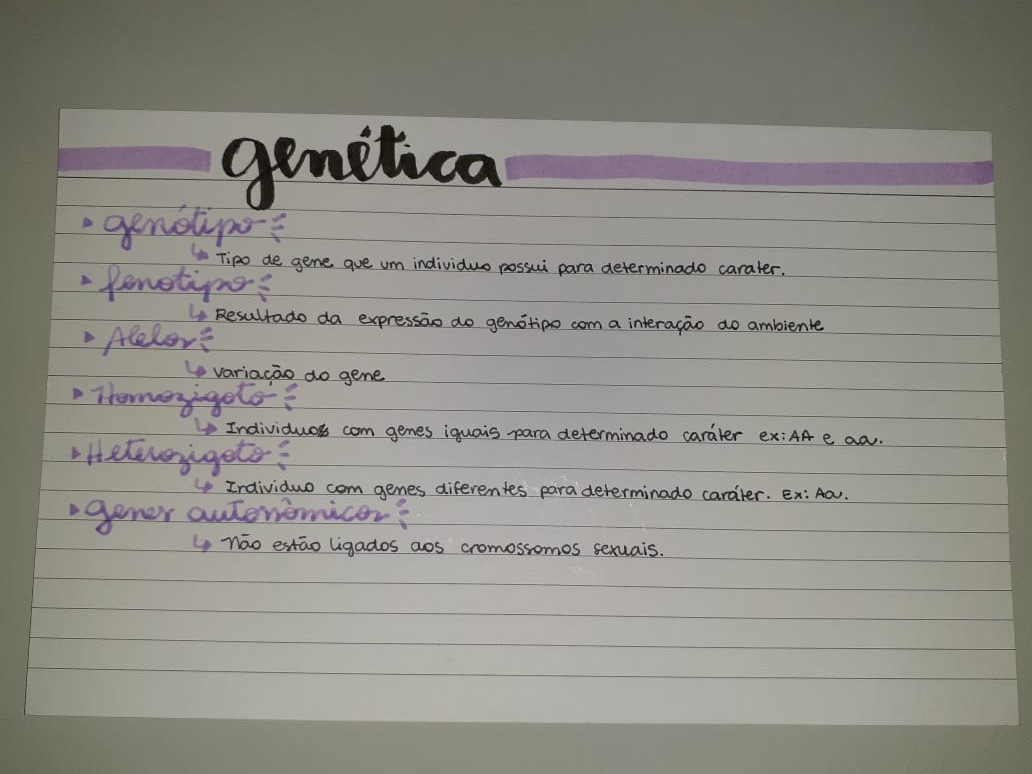 genética
genótipo
Tipo de gene que um individuo possui para determinado carater.
fenotipo
Resultado da expressão do genótipo com a interação do ambiente
Alelos
variação do gene
Homozigoto
Individuos com genes iguais para determinado caráter ex: AA e aa.
Heterozigoto
Individuo com genes diferentes para determinado caráter. Ex: Aa.
genes autonômicos
Não estão ligados aos cromossomos sexuais.